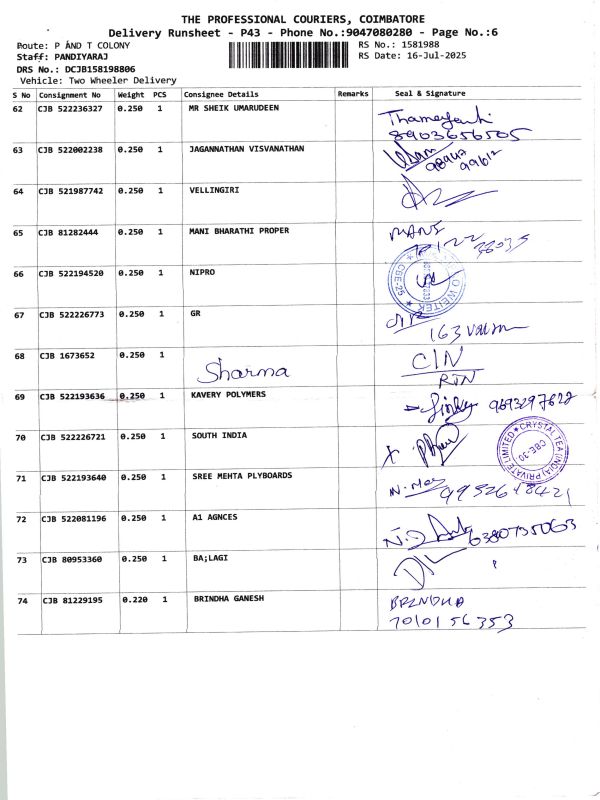 THE PROFESSIONAL COURIERS, COIMBATORE
Delivery Runsheet - P43 - Phone No.:9047080280 - Page No.:6
Route: P AND T COLONY
RS No.: 1581988
Staff: PANDIYARAJ
RS Date: 16-Jul-2025
DRS No.: DCJB158198806
Vehicle: Two Wheeler Delivery
S No Consignment No Weight PCS Consignee Details Remarks Seal & Signature
62 CJB 522236327 0.250 1 MR SHEIK UMARUDEEN
8903656505
63 CJB 522002238 0.250 1 JAGANNATHAN VISVANATHAN
64 CJB 521987742 0.250 1 VELLINGIRI
65 CJB 81282444 0.250 1 MANI BHARATHI PROPER MANI
66 CJB 522194520 0.250 1 NIPRO
CBE-25
67 CJB 522226773 0.250 1 GR
163
68 CJB 1673652 0.250 1 Sharma CIN
RTN
69 CJB 522193636 0.250 1 KAVERY POLYMERS
70 CJB 522226721 0.250 1 SOUTH INDIA
CRYSTAL TEA (INDIA) PRIVATE LIMITED
CBE-30
71 CJB 522193640 0.250 1 SREE MEHTA PLYBOARDS
72 CJB 522081196 0.250 1 A1 AGNCES
6380735063
73 CJB 80953360 0.250 1 BA;LAGI
74 CJB 81229195 0.220 1 BRINDHA GANESH BRINDHA
7010156353